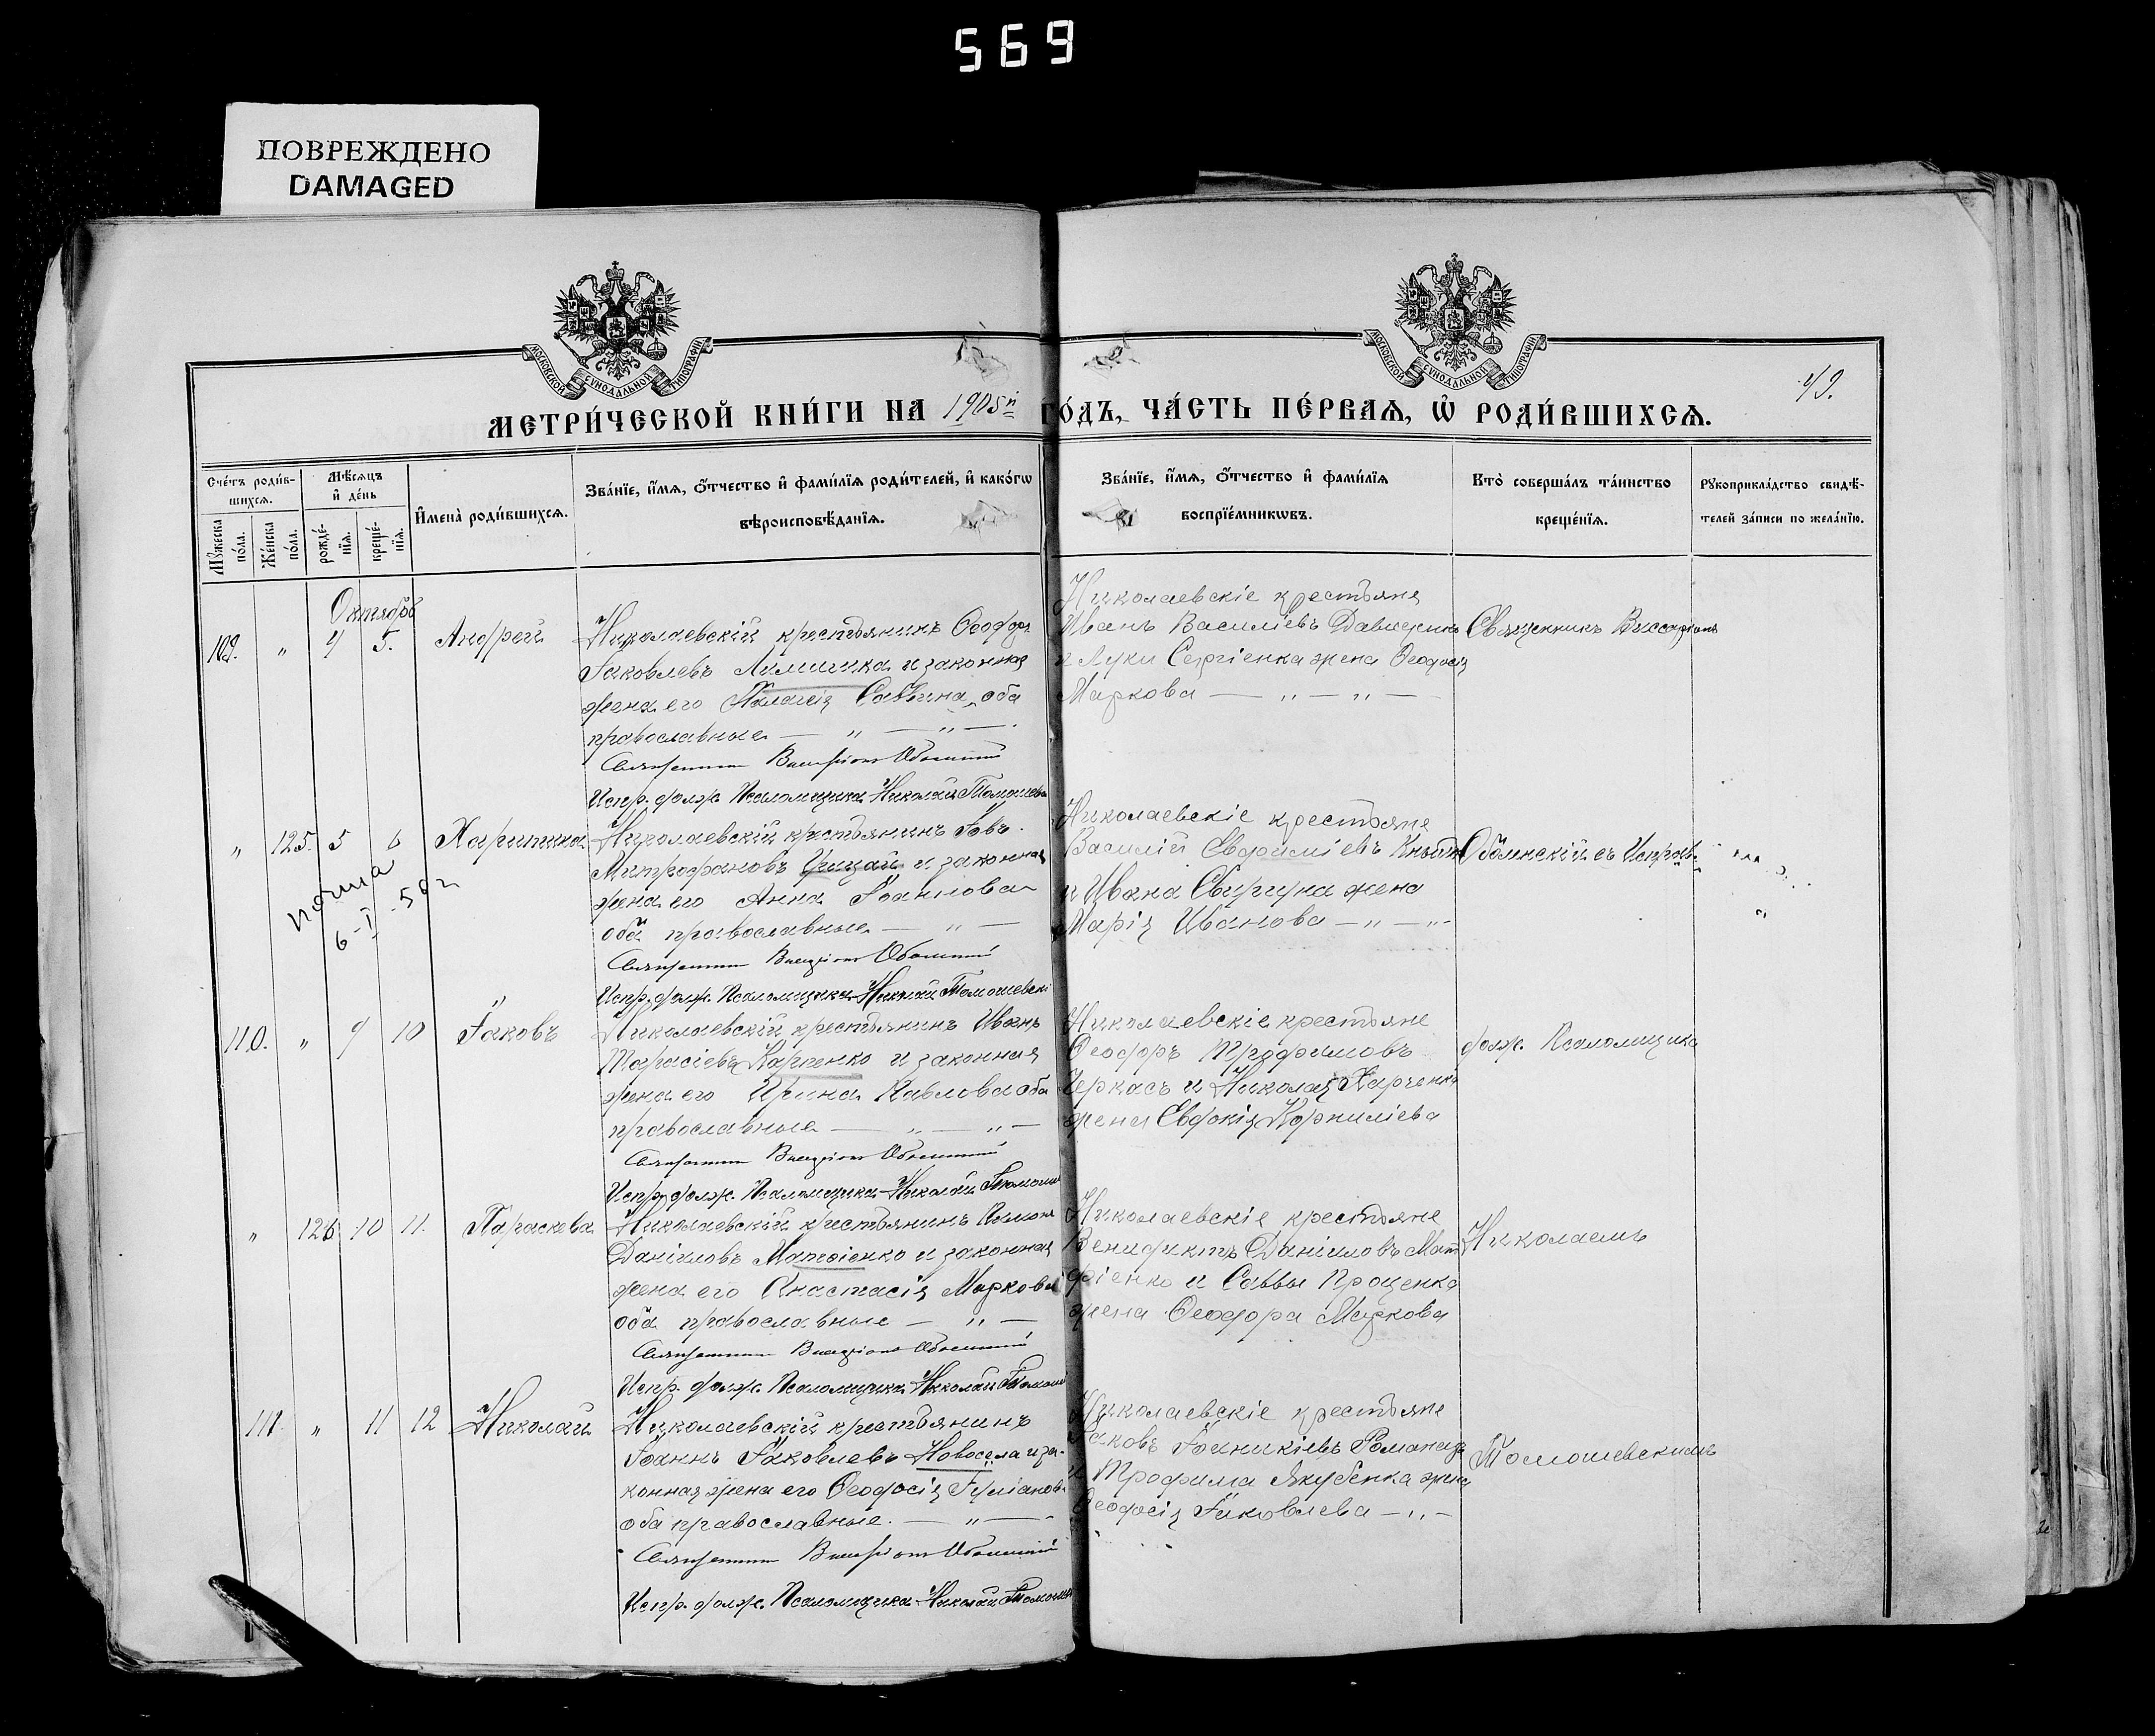 569
ПОВРЕЖДЕНО
DAMAGED
МОСКОВСКОЙ СѴНОДАЛЬНОЙ ТИПОГРАФІИ
МОСКОВСКОЙ СѴНОДАЛЬНОЙ ТИПОГРАФІИ
49.
МЕТРИ́ЧЕСКОЙ КНИ́ГИ НА 1905й ГО́ДЪ, ЧА́СТЬ ПЕ́РВАѦ, Ѡ҆ РОДИ́ВШИХСѦ.
Сче́тъ роди́в-
шихсѧ.
Мꙋ́жеска по́ла.
Же́нска по́ла.
Мѣ́сѧцъ
и҆ де́нь
рожде́-
нїѧ.
креще́-
нїѧ.
И҆мена̀ роди́вшихсѧ.
Зва́нїе, и҆́мѧ, ѻ҆́тчество и҆ фами́лїѧ роди́телей, и҆ како́гѡ
вѣроисповѣ́данїѧ.
Зва́нїе, и҆́мѧ, ѻ҆́тчество и҆ фами́лїѧ
воспрїе́мникѡвъ.
Кто̀ соверша́лъ та́инство
креще́нїѧ.
Рꙋкоприкла́дство свидѣ́-
телей за́писи по жела́нїю.
Октябрь
109. " 4 5. Андрей
Николаевскій крестьянинъ Ѳеодоръ
Іаковлевъ и законная
жена его Пелагія Саввина, оба
православные — " — " —.
Священникъ Виссаріонъ Оболенскій
Испр. долж. Псаломщика Николай Томашевскій
Николаевскіе крестьяне
Иванъ Василіевъ Давиденко
и Луки Сергіенка жена Ѳеодосія
Маркова — " — " —
Священникъ Виссаріонъ
" 125. 5 6 Харитина
помна
6-I-58 г
Николаевскій крестьянинъ Іовъ
Митрофановъ Грицай и законная
жена его Анна Іоаннова
оба православные — " —
Священникъ Виссаріонъ Оболенскій
Испр. долж. Псаломщика Николай Томашевскій
Николаевскіе крестьяне
Василій Евфиміевъ
и Ивана Свиргуна жена
Марія Иванова — " — " -
Оболенскій съ Исправ.
110. " 9 10 Іаковъ
Николаевскій крестьянинъ Иванъ
Тарасіевъ Карпенко и законная
жена его Ирина Павлова оба
православные — " — " —
Священникъ Виссаріонъ Оболенскій
Испр. долж. Псаломщика Николай Томашевскій
Николаевскіе крестьяне
Ѳеодоръ Трофимовъ
Черкасъ и Николая Харченка
жена Евдокія Корниліева
долж. Псаломщика
" 126 10 11. Параскева
Николаевскій крестьянинъ
Даніиловъ Матѳіенко и законная
жена его Анастасія Маркова
оба православные — " —
Священникъ Виссаріонъ Оболенскій
Испр. долж. Псаломщика Николай Томашевскій
Николаевскіе крестьяне
Венидиктъ Даніиловъ Мат
ѳіенко и Саввы Проценко
жена Ѳеодора Маркова
Николаемъ
111. " 11 12 Николай
Николаевскій крестьянинъ
Іоаннъ Іаковлевъ Новосела и за-
конная жена его Ѳеодосія Іуліанова
оба православные. — " — -
Священникъ Виссаріонъ Оболенскій
Испр. долж. Псаломщика Николай Томашевскій
Николаевскіе крестьяне
Іаковъ Іоаникіевъ
и Трофима Якубенка жена
Ѳеодосія Іаковлева — " —
Томашевскимъ